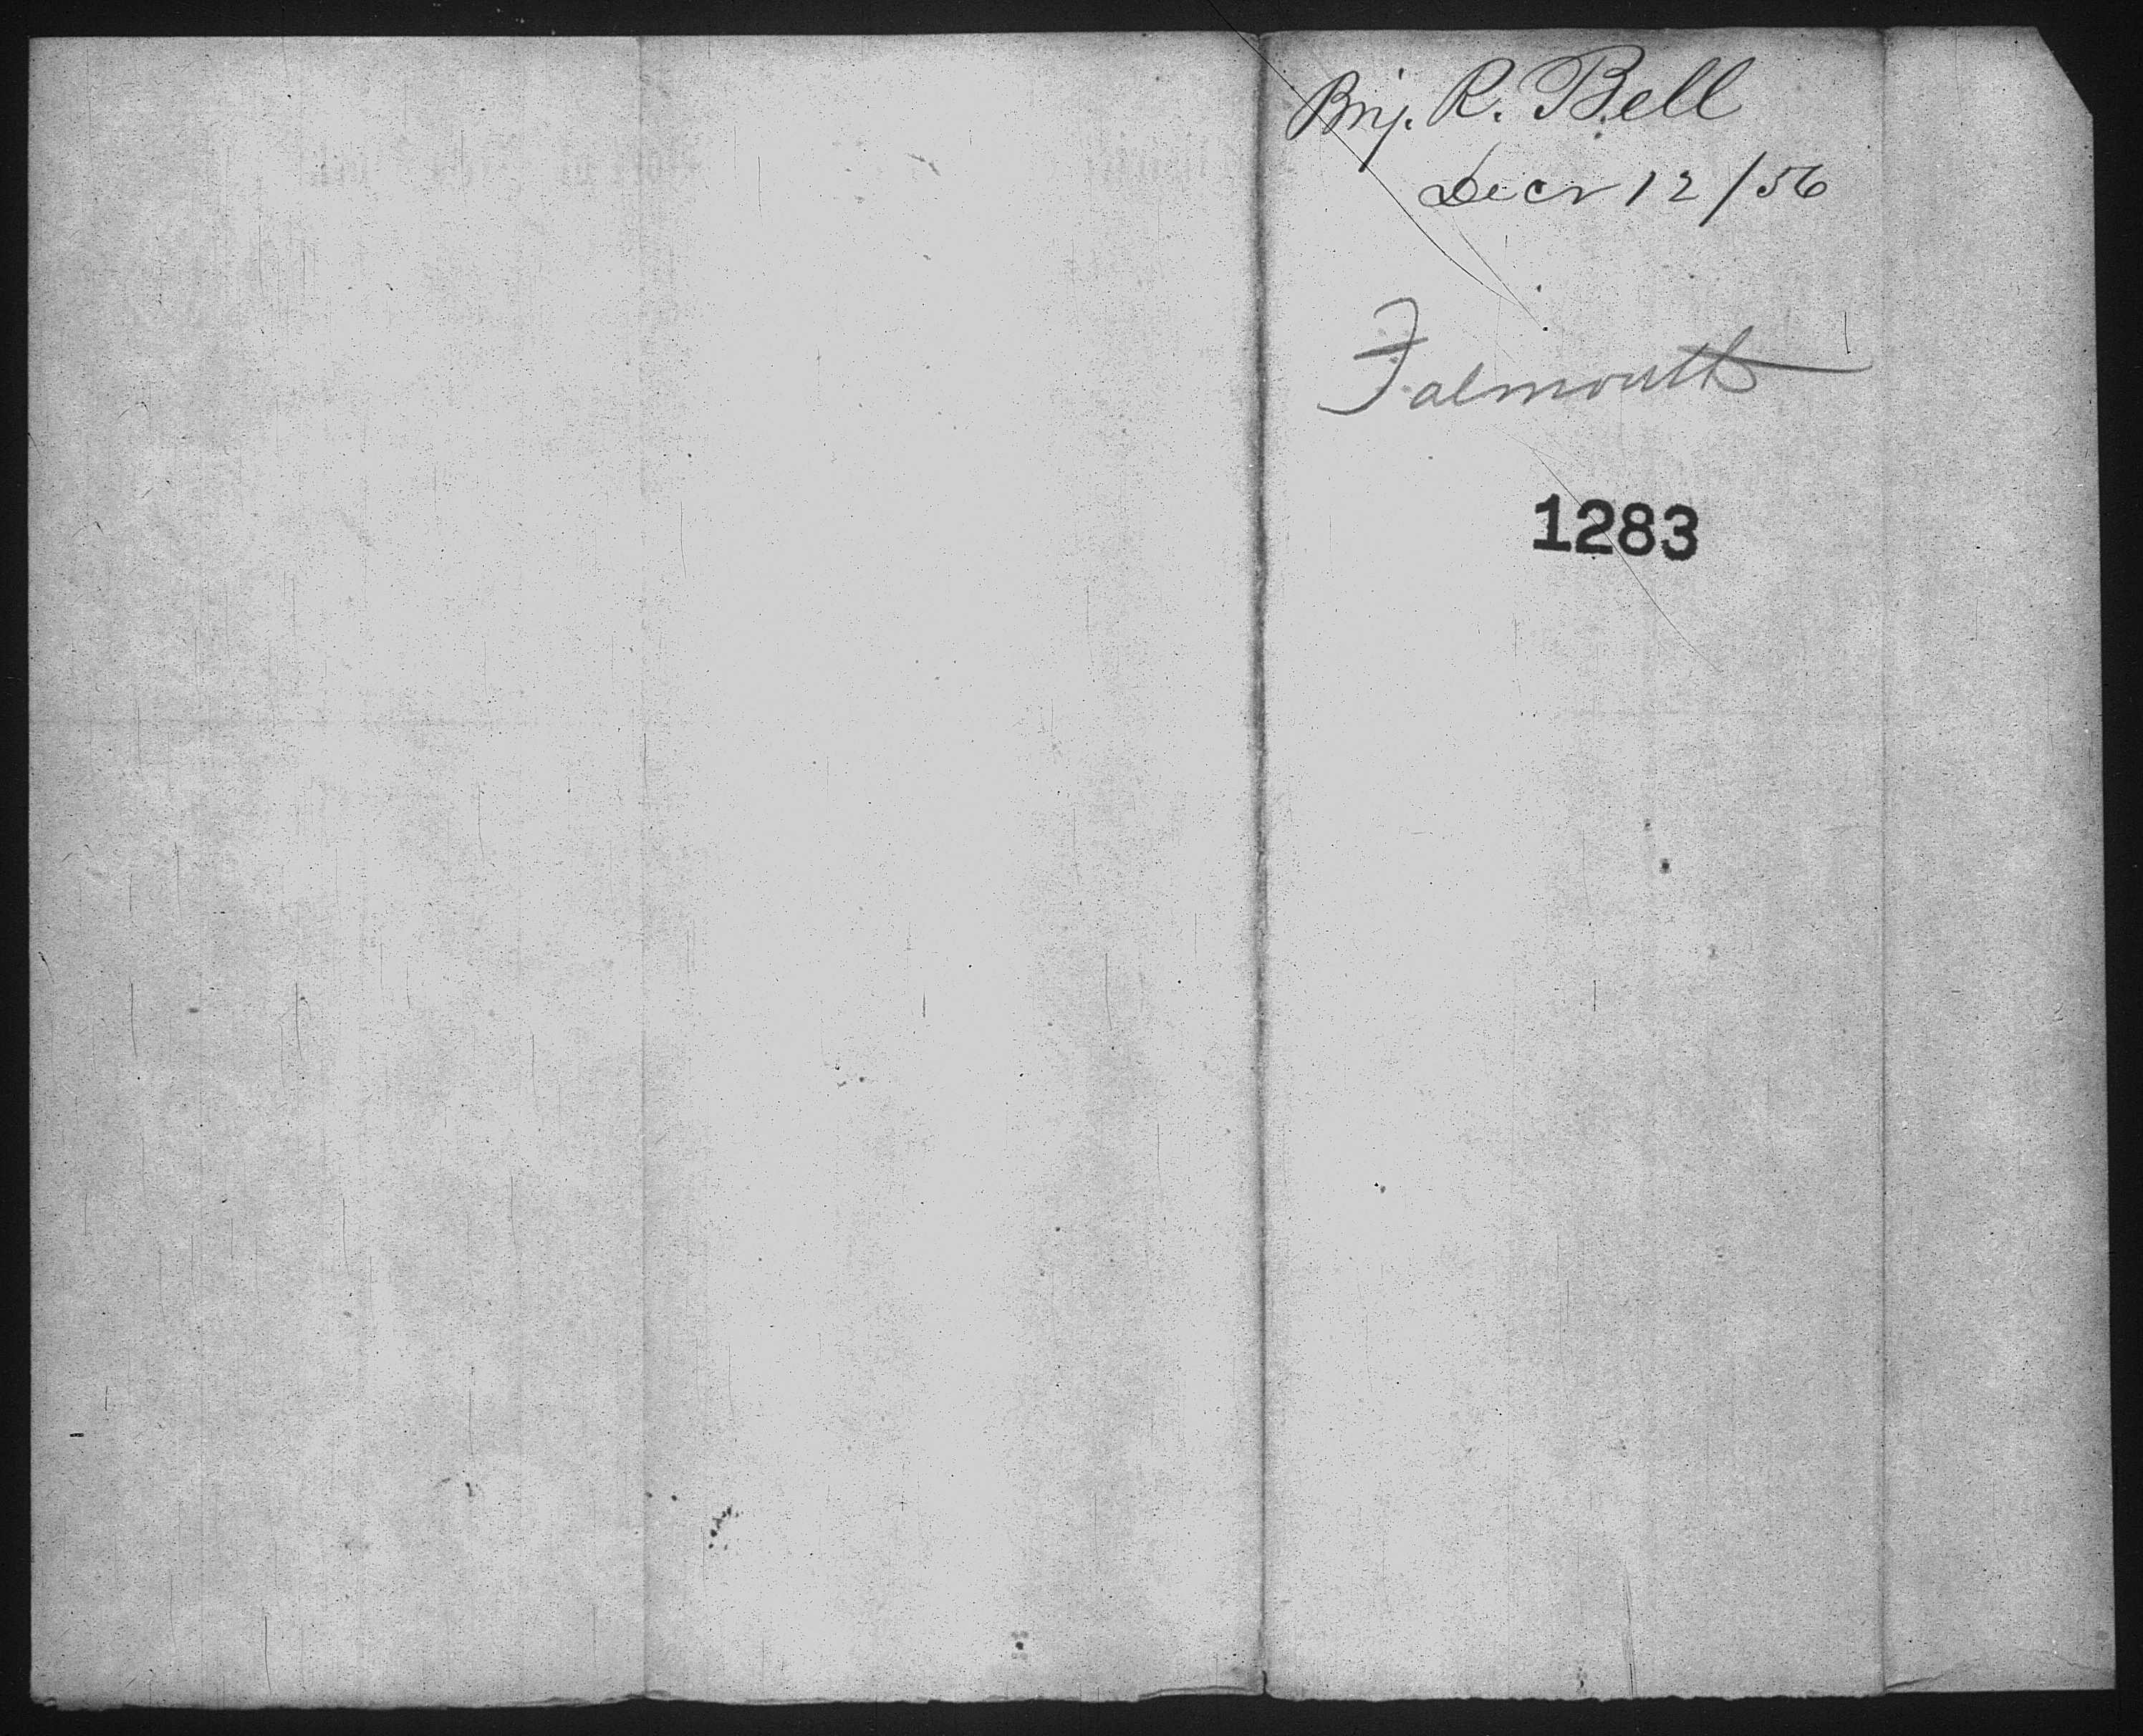 Benj. R. Bell
Decr 12/56
Falmouth
1283